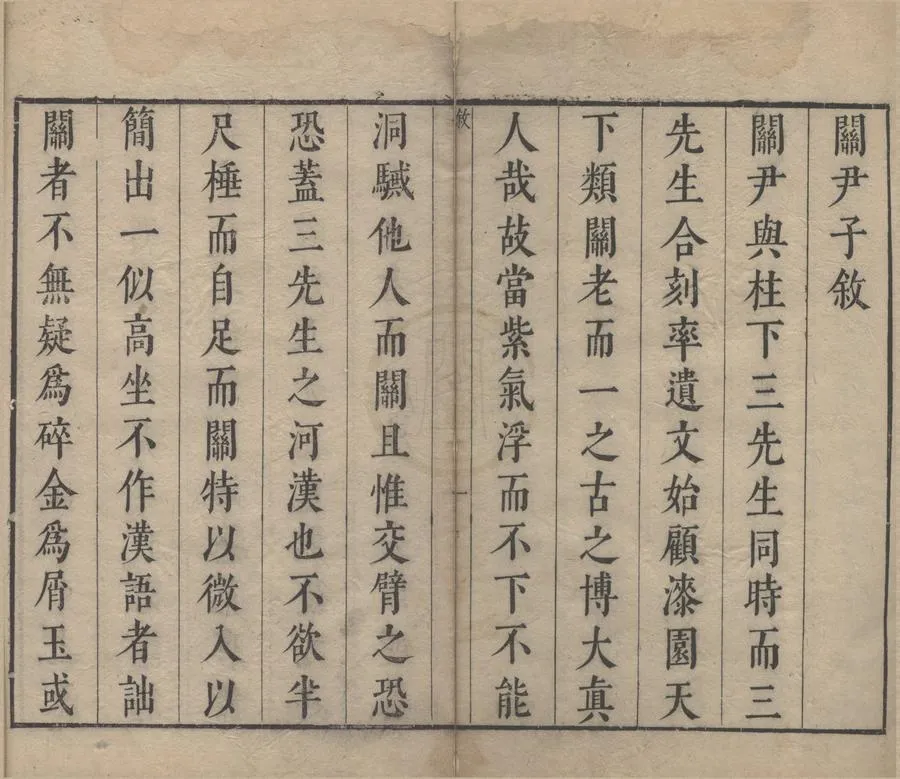 關尹子敘
關尹與柱下三先生同時而三
先生合刻率遺文始顧漆園天
下類關老而一之古之博大眞
人哉故當紫氣浮而不下不能
敘
一
洞駴他人而關且惟交臂之恐
恐蓋三先生之河漢也不欲半
尺棰而自足而關特以微入以
簡出一似高坐不作漢語者詘
關者不無疑爲碎金爲屑玉或